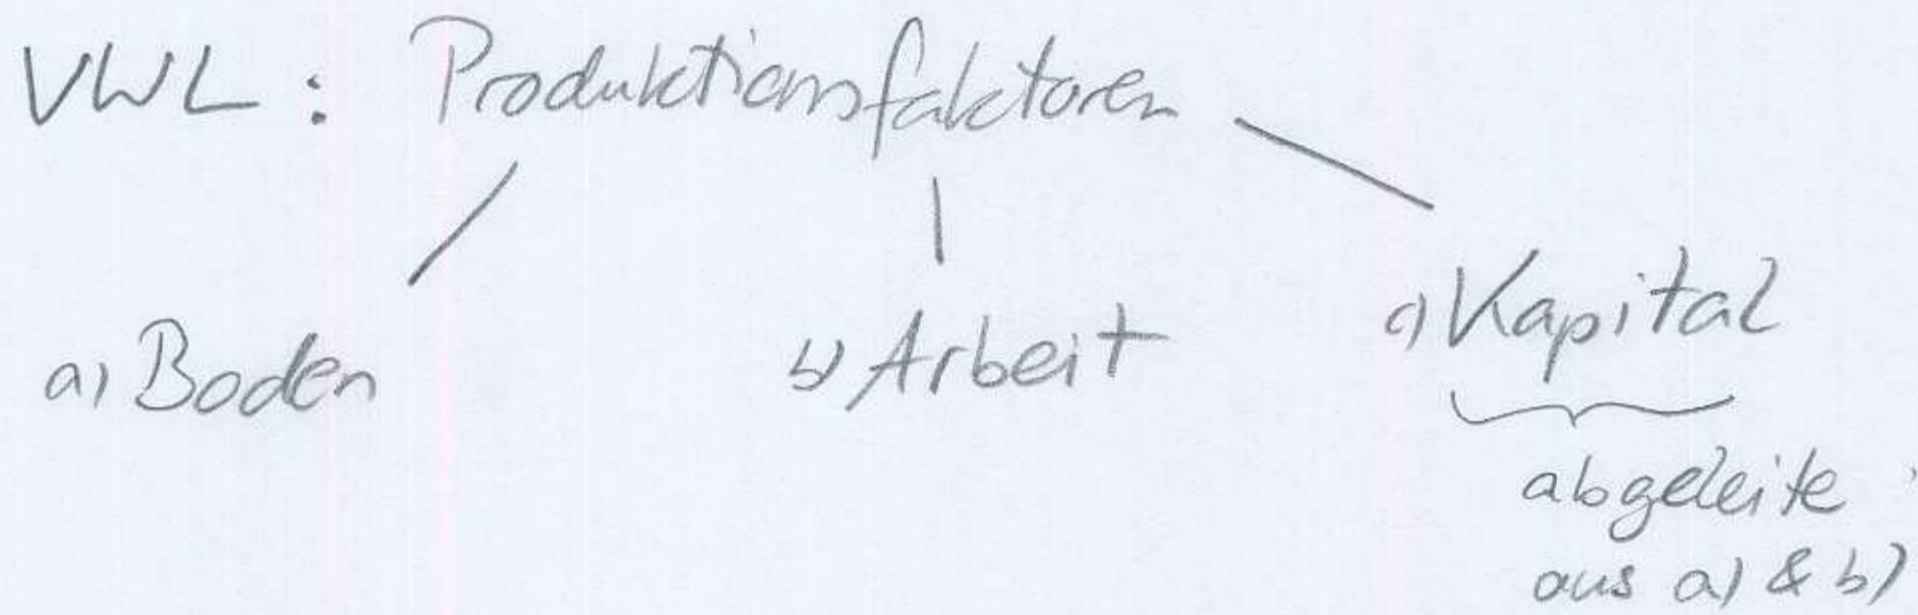 VWL: Produktionsfaktoren
a) Boden b) Arbeit c) Kapital
abgeleite
aus a) & b)